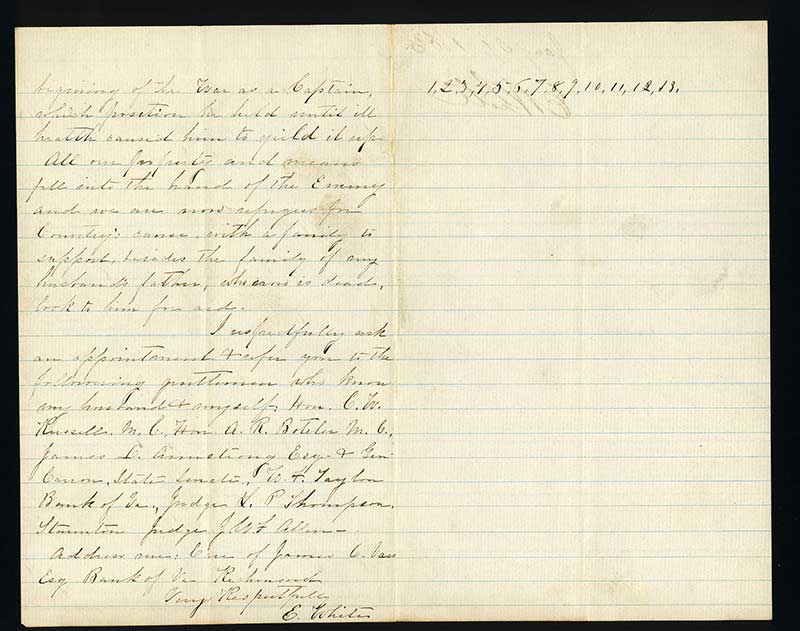 begining of the War as a Captain,
which position he held until ill
health caused him to yield it up.
All our property and means
fell into the hand of the Enemy
and we are now refugees for
Country's cause, with a family to
support, besides the family of my
husband's father, who now is dead,
look to him for aid.
I respectfully ask
an appointment & refer you to the
following gentlemen who know
my husband & myself; Hon. C. W.
Russell M. C., Hon A. R. Boteler M. C.,
James D. Armstrong Esq. & Gen
Carson, State Senate, Taylor
Bank of Va., Judge L. P. Thompson,
Staunton Judge J W F Allen—
Address me: Care of James C. Vass
Esq Bank of Va Richmond
Very Respectfully
E. White
1, 2, 3, 4, 5, 6, 7, 8, 9, 10, 11, 12, 13.